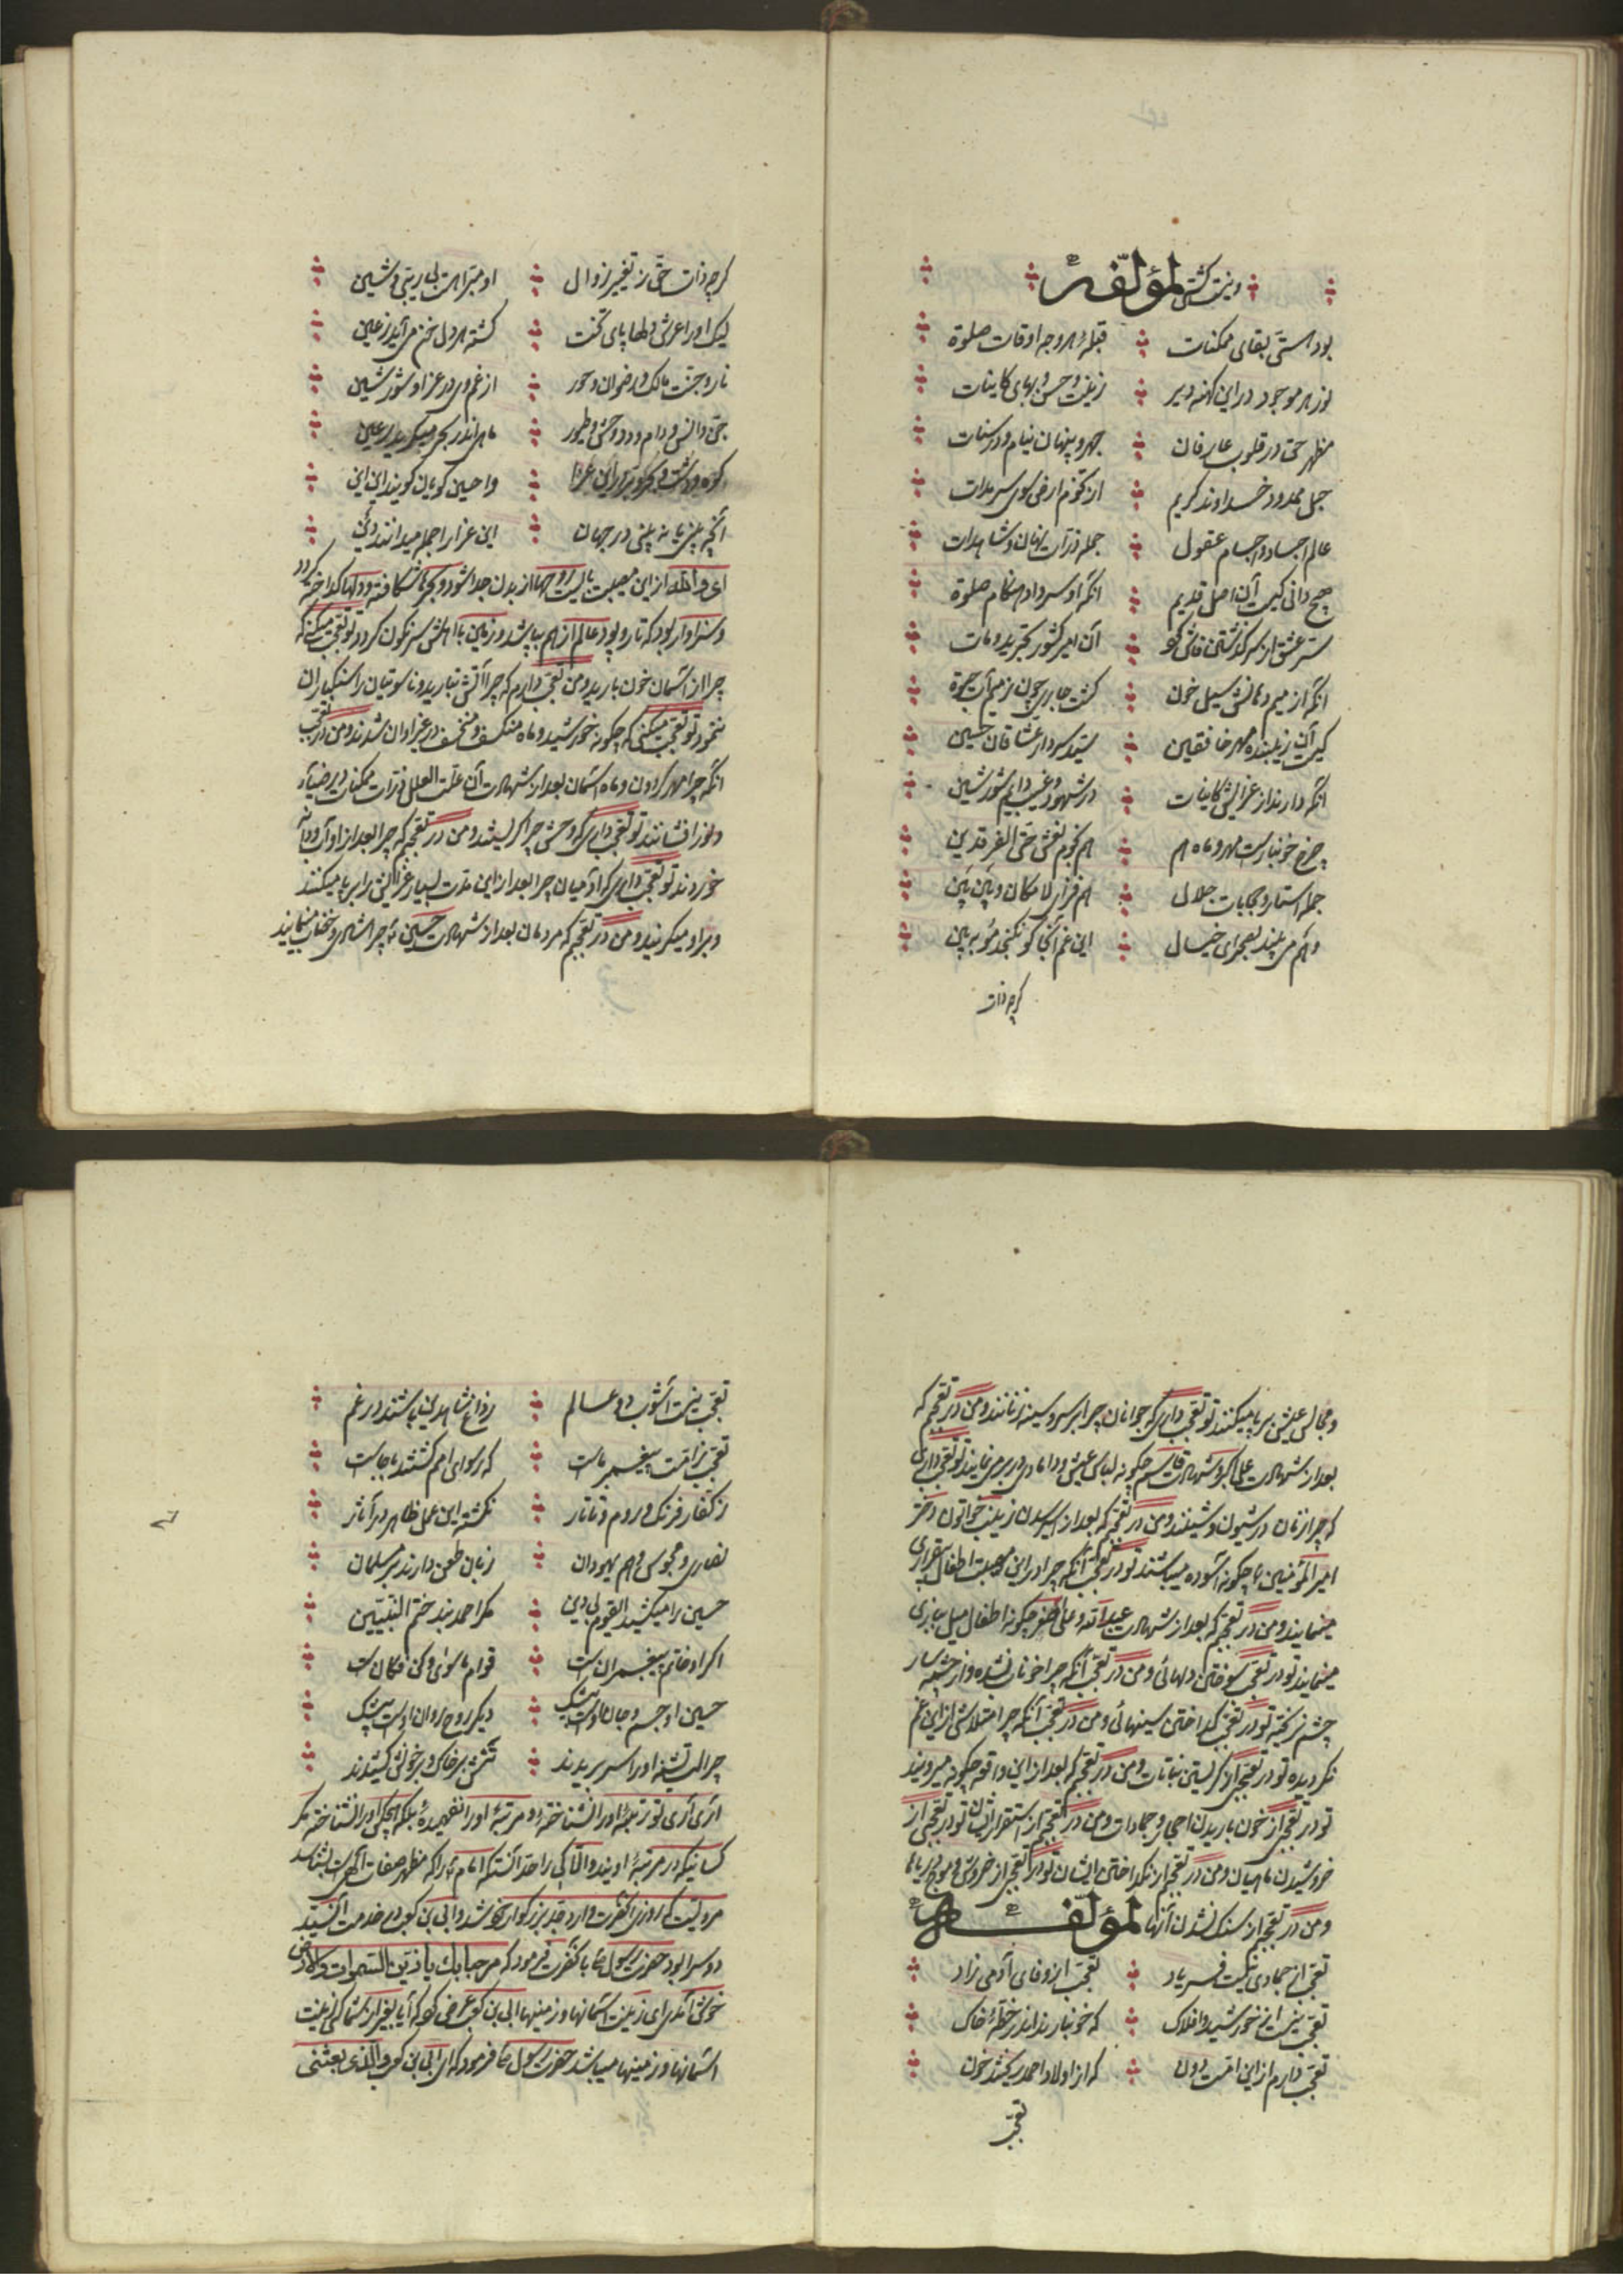 وینت کشتی لمؤلّفه
بود هستی بقای ممکنات قبلهٔ هر وجه اوقات صلوة
نور هر موجود در این کهنه دیر زینت و حسن و بهای کاینات
مظهر حق در قلوب عارفان جهر و پنهان نیام و در سنات
حبل ممدود خداوند کریم از تخوم ارض سوی سرمدات
عالم اجساد و اجسام عقول جمله ذرات نهان و شاهدات
هیچ دانی کیست آن اصل قدیم آنکه او سر داد هنگام صلوة
ستر عشق از سر گذشتن فاش گو آن امیر کشور تجرید و مات
آنکه از میم دهانش سیل خون گشت جاری چون ز میم آب حیوة
کیست آن زیبنده مهر خافقین سید سردار عشاقان حسین
آنکه دارند از عزایش کاینات در شهود و غیب دایم شور شین
چرخ خونبار است مهر و ماه هم هم نجوم نعش حتی الفرقدین
جمله استار و حجابات جلال هم فراز لامکان و بین بین
وهم می بیند بصحرای خیال این غم آنجا کو نگنجد مو ببین
گرچه ذات
گرچه ذات حق ز تغییر زوال او مبراست بی ریبی و شین
لیک او را عرش دلها پای تخت گشته هر دل خون می آید ز عین
نار و جنت مالک و رضوان و حور از غم وی در عزا و شور شین
جن و انس و دام و دد وحش و طیور ماهی اندر بحر میگرید ز عین
کوه و دشت و بحر و بر در این عزا وا حسین گویان گویند این این
آنچه بینی یا نه بینی در جهان این عزا را جمله میدانند دین
ای والله از این مصیبت بایست روحها از بدن جدا شود و جگرها شکافته و دلها گداخته گردد
و سزاوار بود که تار و پود عالم از هم بپاشد و زمین با اهلش سرنگون گردد تو تعجب میکنی که
چرا از آسمان خون بارید و من تعجب دارم که چرا آتش نبارید و ناسوتیان را سنگباران
ننمود تو تعجب میکنی که چگونه خورشید و ماه منکسف و منخسف در عزا و ان شدند و من در تعجب
آنکه چرا مهر گردون و ماه آسمان بعد از شهادت آن علت العلل ذرات ممکنات دیر ضیاء
و نور افشانند تو تعجب داری که وحش چرا گریستند و من در تعجبم که چرا بعد از او آب و دانه
خوردند تو تعجب داری که آدمیان چرا بعد از این مدت بسیار عزایش را بر پا میکنند
و بر او میگریند و من در تعجبم که مردمان بعد از شهادت حسین ع چرا شادی و خضاب مینمایند
و مجالس عیش بر پا میکنند تو تعجب داری که جوانان چرا بر سر و سینه زنانند و من در تعجبم که
بعد از شهادت علی اکبر و شهادت قاسم چگونه لباس عیش و دامادی در بر مینمایند تو تعجب داری
که چرا زنان در شیون و شینند و من در تعجبم که بعد از اسیر شدن زینب خاتون دختر
امیر المؤمنین ع چگونه آسوده میباشند تو در تعجب آنکه چرا در این مصیبت اطفال بیقراری
مینمایند و من در تعجبم که بعد از شهادت عبدالله و علی اصغر چگونه اطفال میل ببازی
مینمایند تو در تعجب سوختن دلهائی و من در تعجب آنکه چرا خون نشده و از چشمه سار
چشم نریخته تو در تعجب گداختن سینهائی و من در تعجب آنکه چرا متلاشی از این غم
نگردیده تو در تعجبی از گریستن نباتات و من در تعجبم که بعد از این واقعه چگونه میرویند
تو در تعجبی از خون باریدن احجار و جمادات و من در تعجبم از استقرار ایشان تو در تعجبی از
خروشیدن ماهیان و من در تعجبم از نگداختن ایشان تو در تعجبی از خروش و موج دریاها
و من در تعجبم از سنگ نشدن آنها لمؤلفه
تعجب از جمادی نیست فریاد تعجب از وفای آدمی زاد
تعجب نیست از خورشید و افلاک که خونبارند اندر خطهٔ خاک
تعجب دارم از این امت دون که از اولاد احمد ریختند خون
تعجب
تعجب نیست آشوب دو عالم زواغ شاه دین باشند در غم
تعجب ز امت پیغمبر ماست که رسوای امم گشتند بجاست
ز کفار فرنگ و روم و تاتار نگشته این عمل ظاهر در آثار
نصاری و مجوسی و هم یهودان زبان طعن دارند بر مسلمان
حسین را میکشید القوم بی دین مگر احمد نبد ختم النبیین
اگر او خاتم پیغمبران است قوام ماسوی و کن فکان ست
حسین او جسم و جان اوست بیشک دیگر روح روان اوست بیشک
چرا لب تشنه او را سر بریدند تنش بر خاک و بر خونش کشیدند
آری آری تو رتبهٔ او را نشناختهٔ و مرتبهٔ او را نفهمیدهٔ بلکه هیچکس او را نشناخته مگر
کسانیکه در مرتبهٔ اویند و الا کی را حد آنست که امام ع را که مظهر صفات الهی است بشناسد
مرویست که روزی آنحضرت وارد جد بزرگوار خود شد و ابی بن کعب در خدمت آنسید
دو سرا بود حضرت رسول ص بآنحضرت فرمود که مرحبا بک یا زین السموات والارض
خوش آمدی ای زینت آسمانها و زمینها ابی بن کعب عرض کرد که آیا بغیر از شما کسی زینت
آسمانها و زمینها میباشد حضرت رسول ص فرمود که ای ابی بن کعب والذی بعثنی